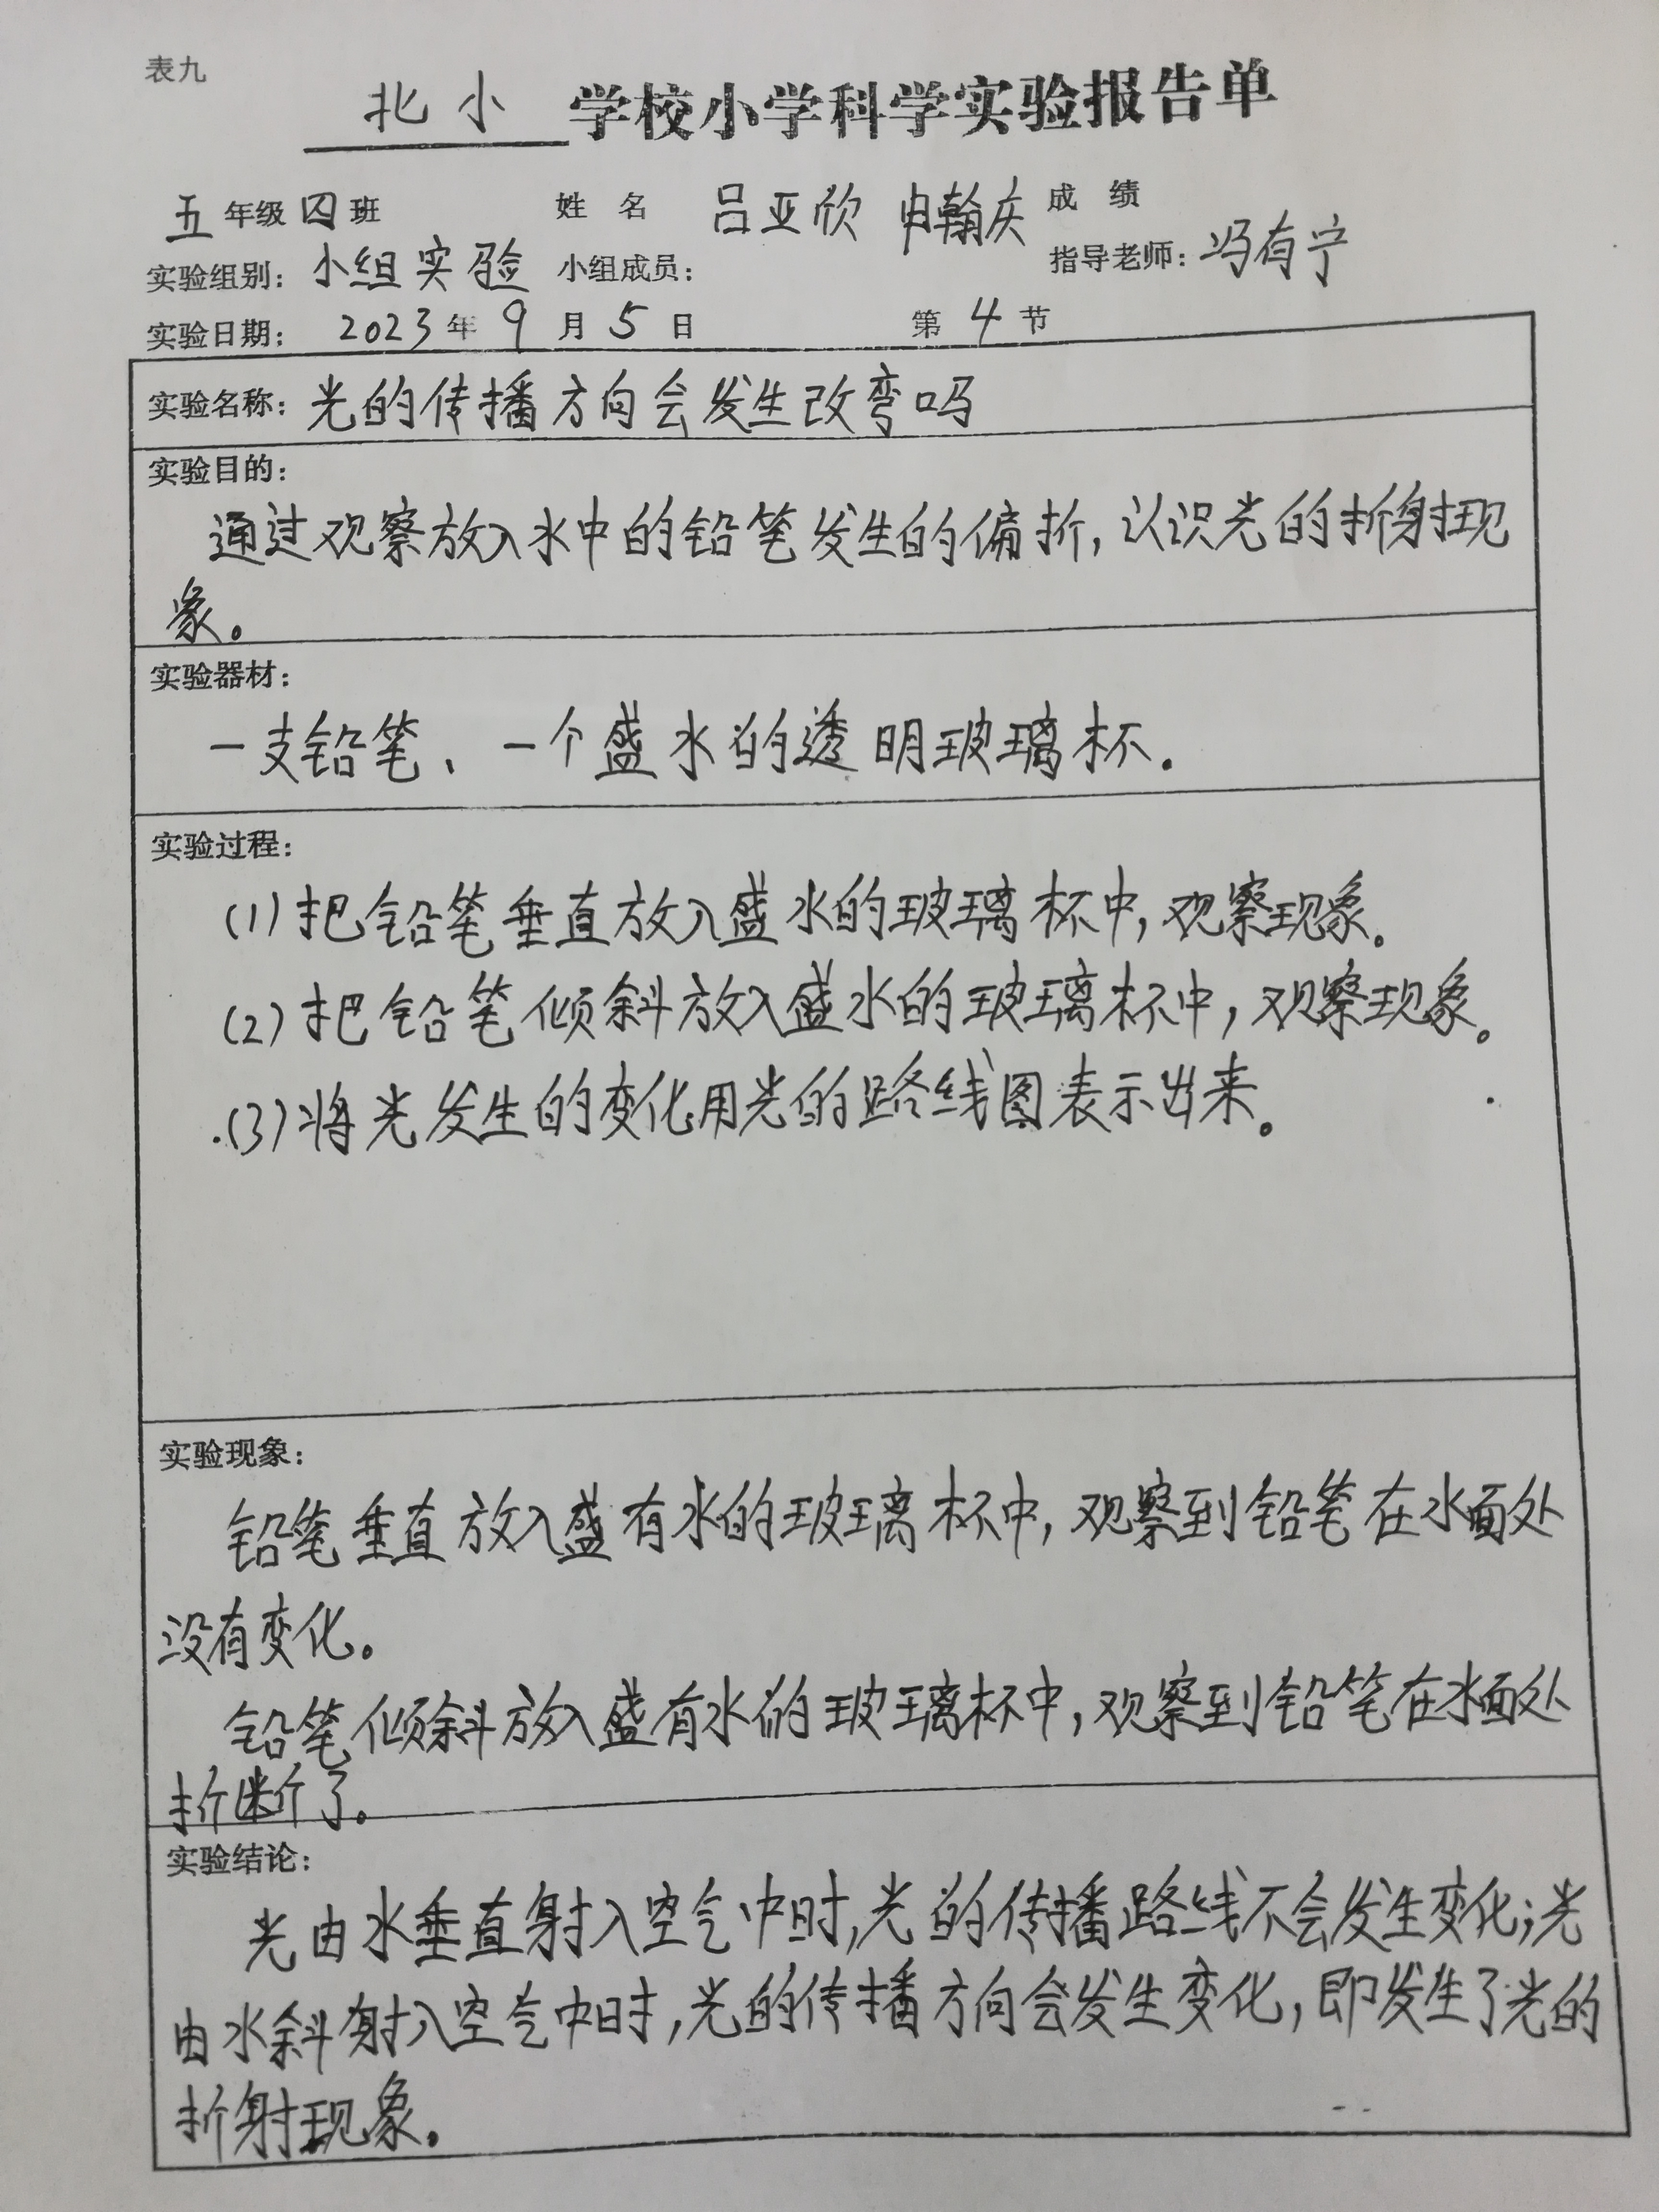 表九
北小学校小学科学实验报告单
五年级四班 姓名 吕亚欣 申翰庆 成绩
实验组别：小组实验 小组成员： 指导老师：冯有宁
实验日期： 2023年9月5日 第4节
实验名称：光的传播方向会发生改弯吗
实验目的：
通过观察放入水中的铅笔发生的偏折，认识光的折射现
象。
实验器材：
一支铅笔、一个盛水的透明玻璃杯.
实验过程：
(1)把铅笔垂直放入盛水的玻璃杯中，观察现象。
(2)把铅笔倾斜放入盛水的玻璃杯中，观察现象。
(3)将光发生的变化用光的路线图表示出来。
实验现象：
铅笔垂直放入盛有水的玻璃杯中，观察到铅笔在水面处
没有变化。
铅笔倾斜放入盛有水的玻璃杯中，观察到铅笔在水面处
折断了。
实验结论：
光由水垂直射入空气中时，光的传播路线不会发生变化；光
由水斜射入空气中时，光的传播方向会发生变化，即发生了光的
折射现象。